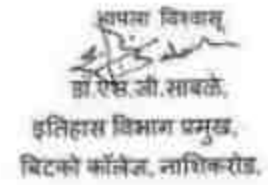 आपला विश्वासू
डॉ.एस.जी.साबळे,
इतिहास विभाग प्रमुख,
बिटको कॉलेज, नाशिकरोड,